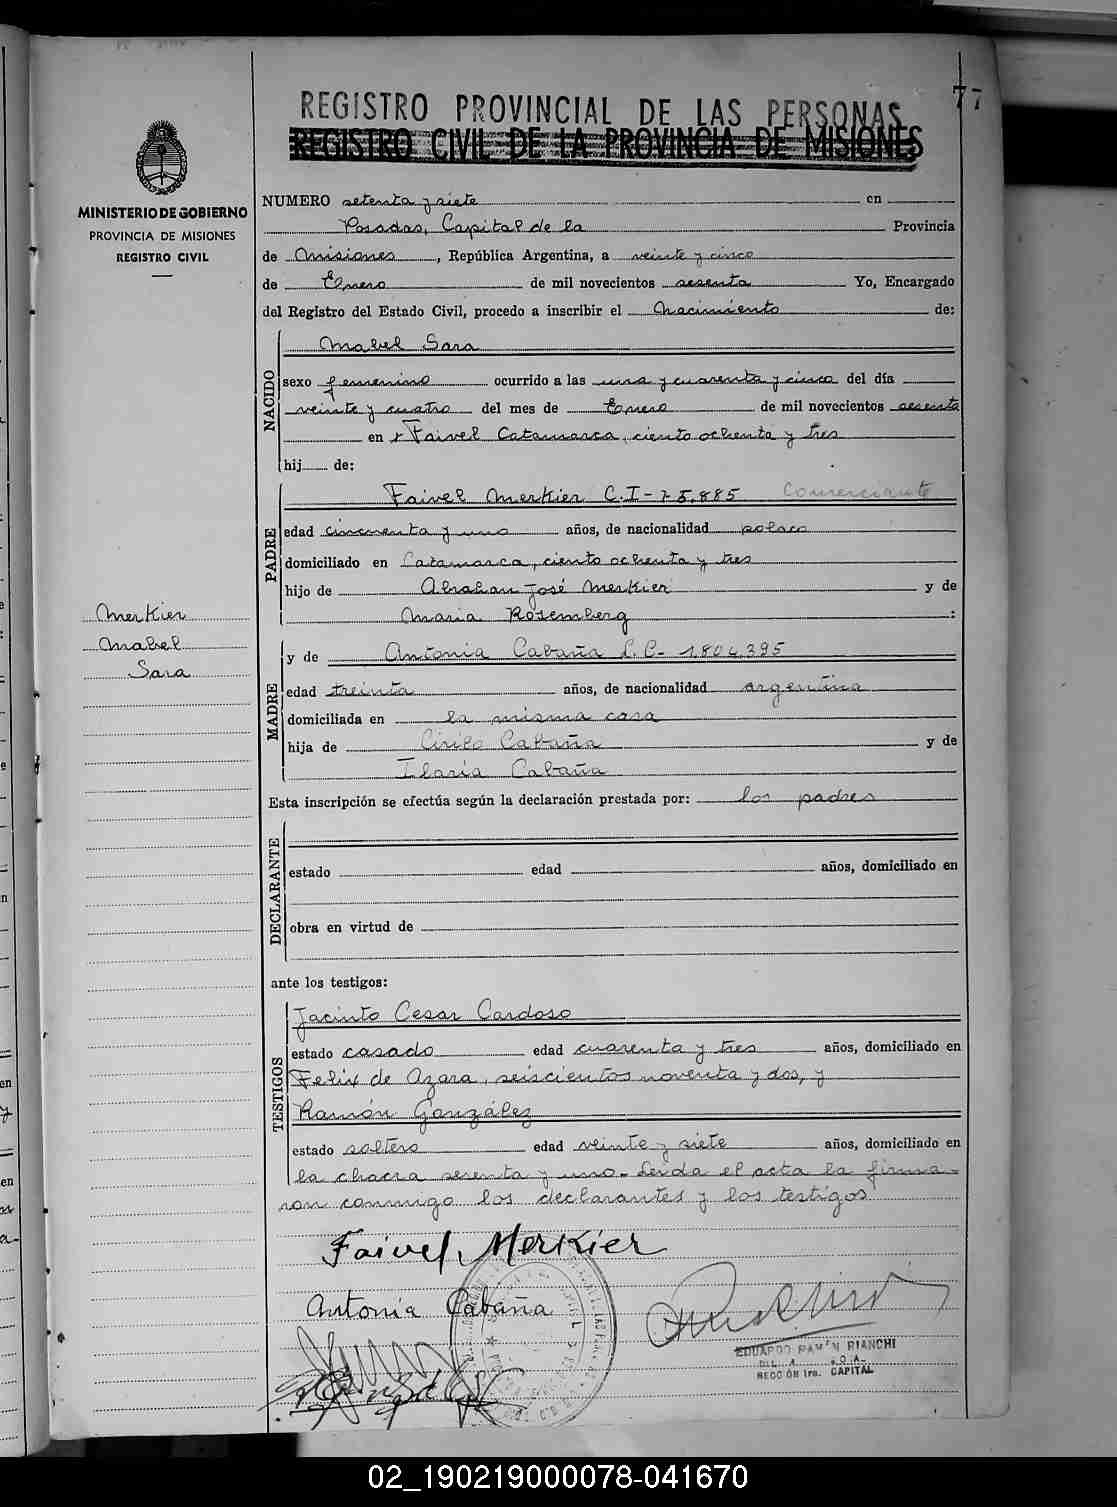 77
REGISTRO PROVINCIAL DE LAS PERSONAS
REGISTRO CIVIL DE LA PROVINCIA DE MISIONES
MINISTERIO DE GOBIERNO
PROVINCIA DE MISIONES
REGISTRO CIVIL
NUMERO setenta y siete en
Posadas, Capital de la Provincia
de Misiones, República Argentina, a veinte y cinco
de Enero de mil novecientos sesenta Yo, Encargado
del Registro del Estado Civil, procedo a inscribir el Nacimiento de:
NACIDO
Mabel Sara
sexo femenino ocurrido a las una y cuarenta y cinco del día
veinte y cuatro del mes de Enero de mil novecientos sesenta
en Faivel Catamarca, ciento ochenta y tres
hij de:
PADRE
Faivel Merkier C.I-75.885 Comerciante
edad cincuenta y uno años, de nacionalidad polaco
domiciliado en Catamarca, ciento ochenta y tres
hijo de Abrahan José Merkier y de
Maria Rosemberg :
Merkier
Mabel
Sara
MADRE
y de Antonia Cabaña L.C- 1.804.395
edad treinta años, de nacionalidad argentina
domiciliada en la misma casa
hija de Cirilo Cabaña y de
Ilaria Cabaña
Esta inscripción se efectúa según la declaración prestada por: los padres
DECLARANTE
estado edad años, domiciliado en
obra en virtud de
ante los testigos:
TESTIGOS
Jacinto Cesar Cardoso
estado casado edad cuarenta y tres años, domiciliado en
Felix de Azara, seiscientos noventa y dos, y
Ramón González
estado soltero edad veinte y siete años, domiciliado en
la chacra sesenta y uno- Leida el acta la firma-
ron conmigo los declarantes y los testigos
Faivel Merkier
Antonia Cabaña
EDUARDO RAMON BIANCHI
SECCIÓN 1ra. CAPITAL
02_190219000078-041670